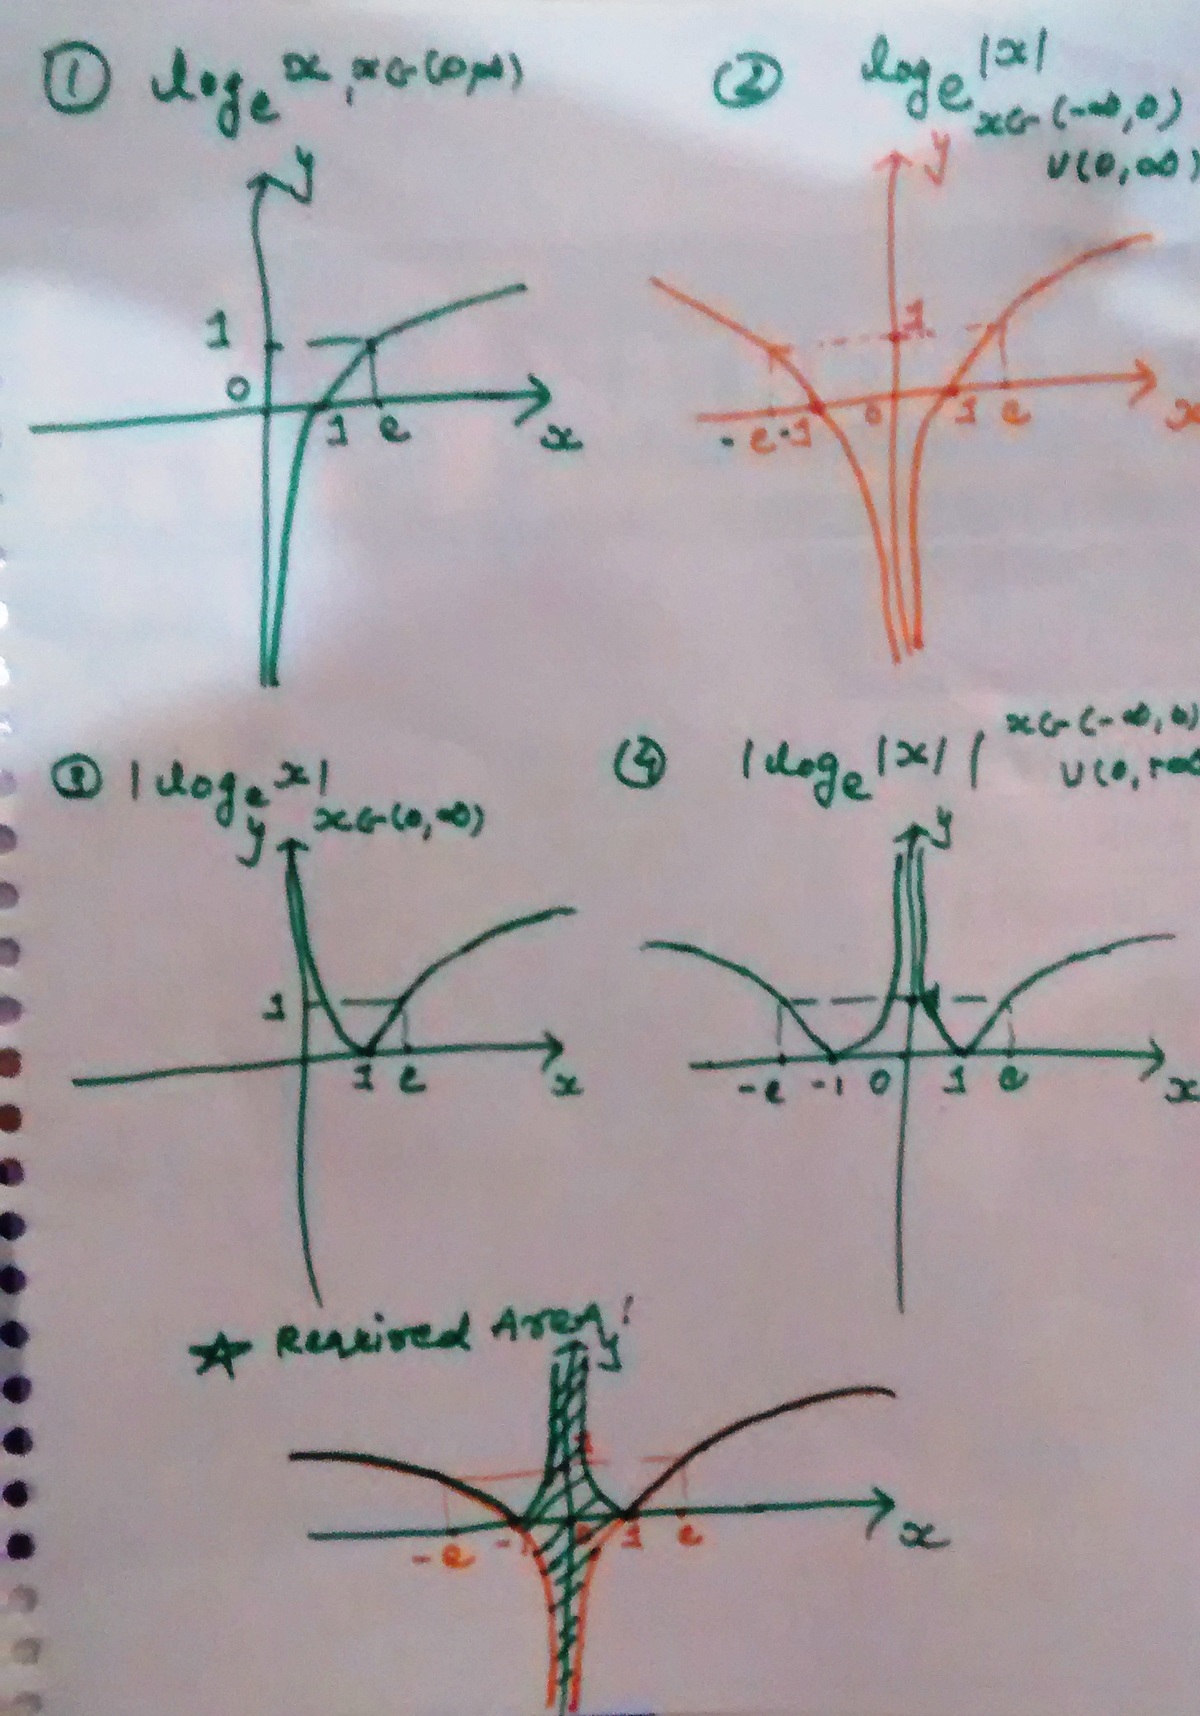 ① logₑ x, x∈(0,∞)
y
1
0
1 e
x
② logₑ |x|
x∈(-∞,0)
∪(0,∞)
y
1
-e -1 0 1 e
x
③ |logₑ x|
x∈(0,∞)
y
1
1 e
x
④ |logₑ |x||
x∈(-∞,0)
∪(0,+∞
y
-e -1 0 1 e
x
☆ Required Area:
y
1
-e -1 0 1 e
x